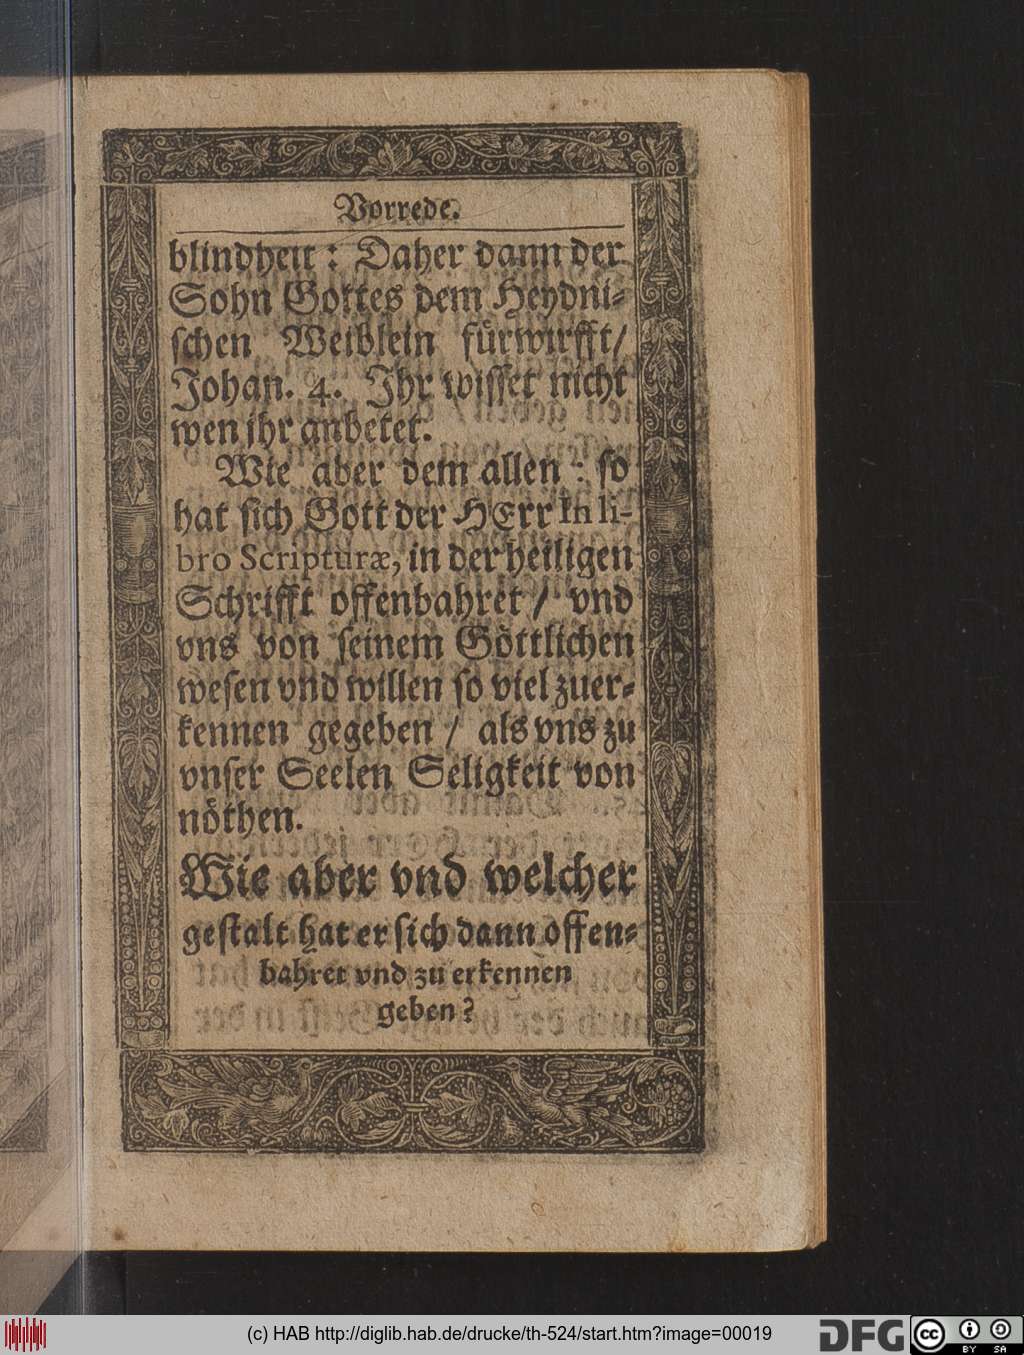 Vorrede.
blindheit: Daher dann der
Sohn Gottes dem Heydni-
schen Weiblein fürwirfft/
Johan. 4. Ihr wisset nicht
wen jhr anbetet.
Wie aber dem allen: so
hat sich Gott der HErr In li-
bro Scripturæ, in der heiligen
Schrifft offenbahret/ vnd
vns von seinem Göttlichen
wesen vnd willen so viel zuer-
kennen gegeben/ als vns zu
vnser Seelen Seligkeit von
nöthen.
Wie aber vnd welcher
gestalt hat er sich dann offen-
bahret vnd zu erkennen
geben?
(c) HAB http://diglib.hab.de/drucke/th-524/start.htm?image=00019
DFG
cc BY SA